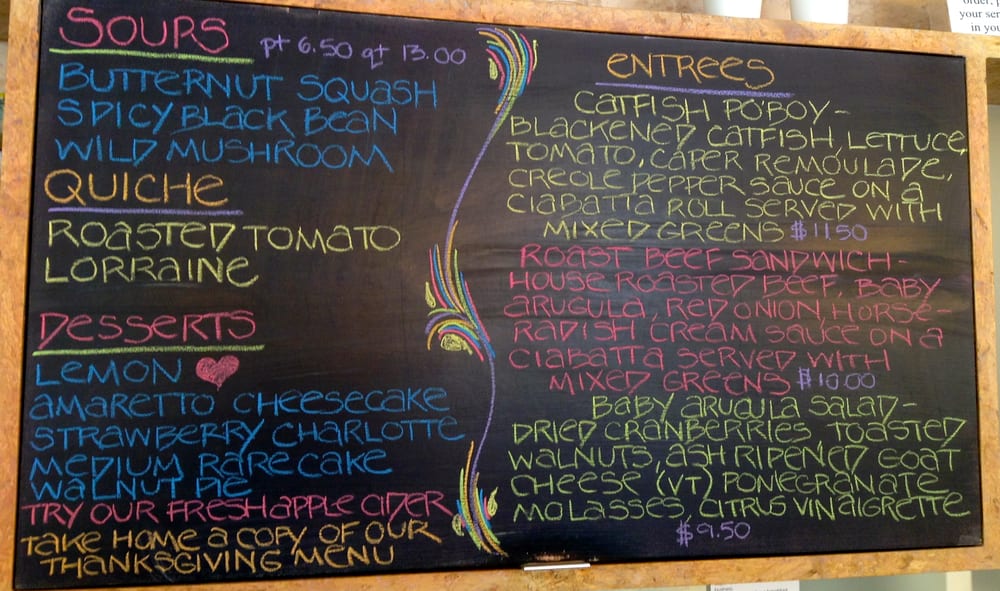 SOURS pt 6.50 qt 13.00
BUTTERNUT SQUASH
SPICY BLACK BEAN
WILD MUSHROOM
QUICHE
ROASTED TOMATO
LORRAINE
DESSERTS
LEMON
AMARETTO CHEESECAKE
STRAWBERRY CHARLOTTE
MEDIUM RARE CAKE
WALNUT PIE
TRY OUR FRESH APPLE CIDER
TAKE HOME A COPY OF OUR
THANKSGIVING MENU
ENTREES
CATFISH PO'BOY-
BLACKENED CATFISH, LETTUCE,
TOMATO, CAPER REMOULADE,
CREOLE PEPPER SAUCE ON A
CIABATTA ROLL SERVED WITH
MIXED GREENS $11.50
ROAST BEEF SANDWICH-
HOUSE ROASTED BEEF, BABY
ARUGULA, RED ONION, HORSE-
RADISH CREAM SAUCE ON A
CIABATTA SERVED WITH
MIXED GREENS $10.00
BABY ARUGULA SALAD-
DRIED CRANBERRIES TOASTED
WALNUTS, ASH RIPENED GOAT
CHEESE (VT) POMEGRANATE
MOLASSES, CITRUS VINAIGRETTE
$9.50
your
in you